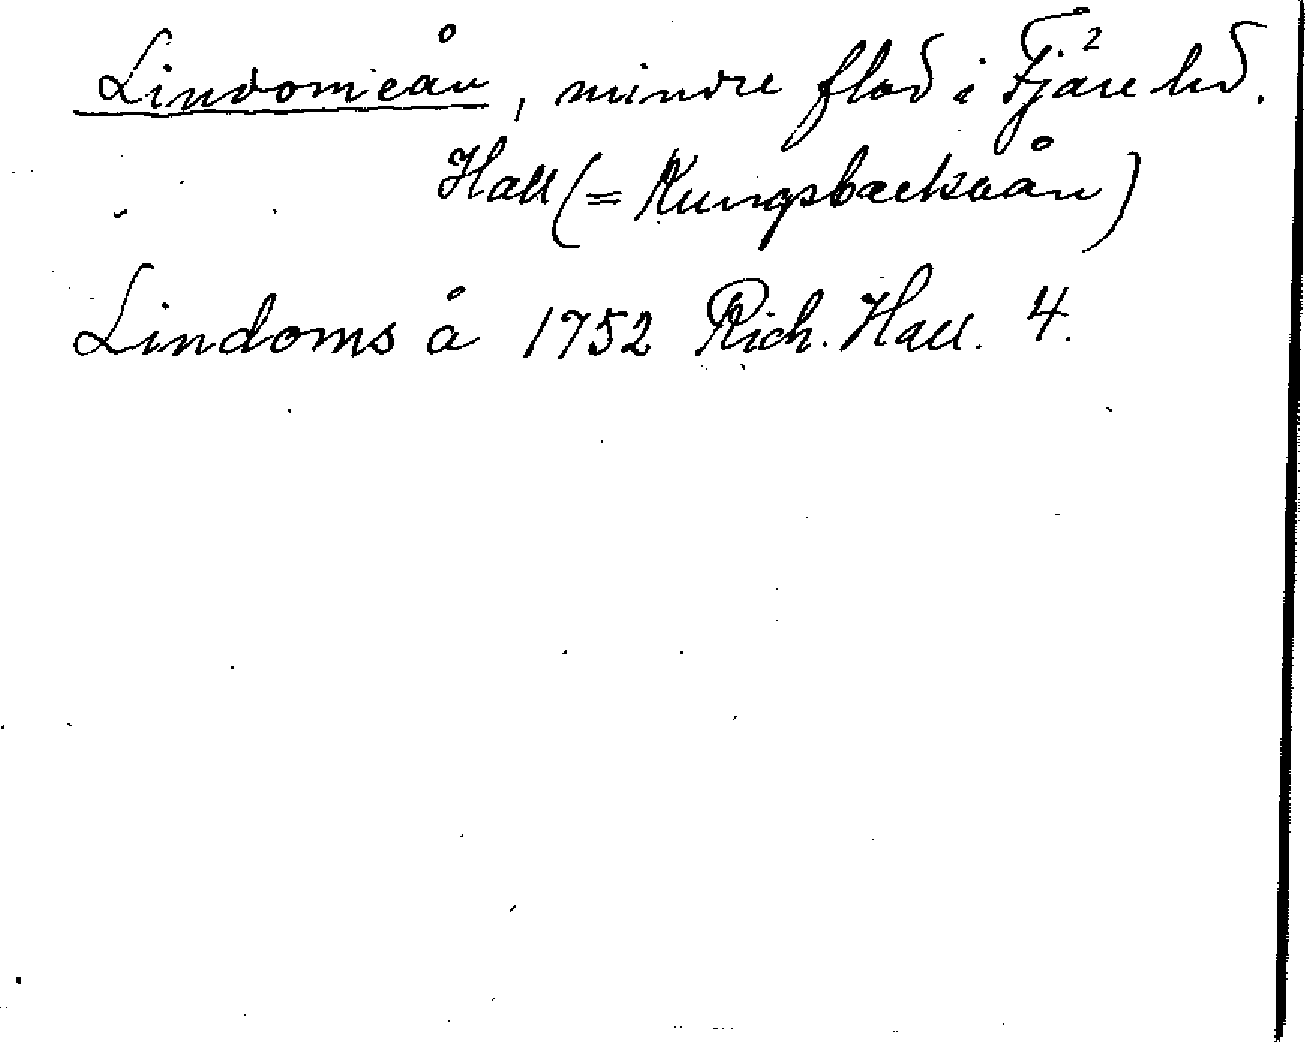 Lindomeån, mindre flod i Fjäre hd.
Hall (= Kungsbackaån)
Lindoms å 1752 Rich. Hall. 4.